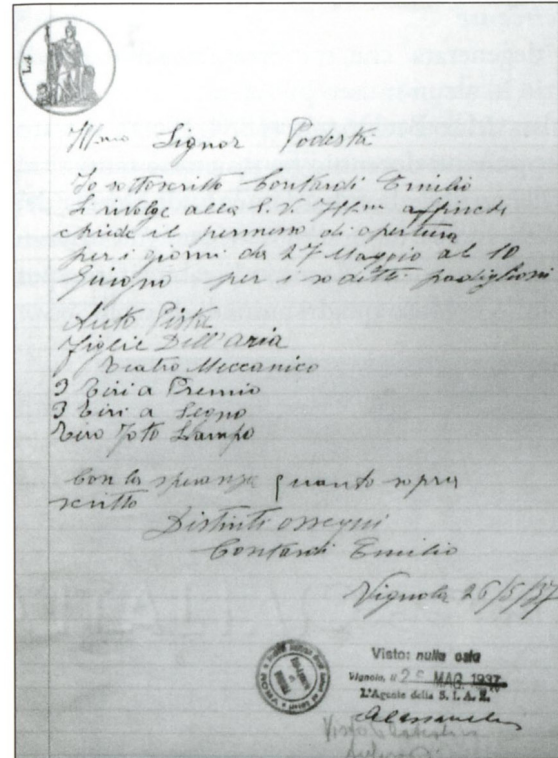 L4
Ill.mo Signor Podestà
Io sottoscritto Contardi Emilio
si rivolge alla S.V. Ill.ma affinchè
chiede il permesso di apertura
per i giorni da 27 Maggio al 10
Giugno per i sodetti padiglioni
Auto Pista
Figlie Dell'aria
Teatro Meccanico
3 Tiri a Premio
3 Tiri a Segno
Tiro Foto Lampo
Con la speranza quanto sopra
scritto
Distinti ossequi
Contardi Emilio
Vignola 26/5/37
Visto: nulla osta
Vignola, li 26 MAG. 1937
L'Agente della S. I. A. E.